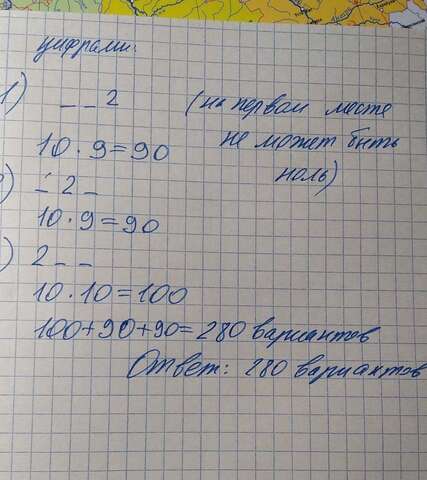 цифрами:
1) _ _ 2 (на первом месте
10 · 9 = 90 не может быть
ноль)
) _ 2 _
10 · 9 = 90
) 2 _ _
10 · 10 = 100
100+90+90= 280 вариантов
Ответ: 280 вариантов